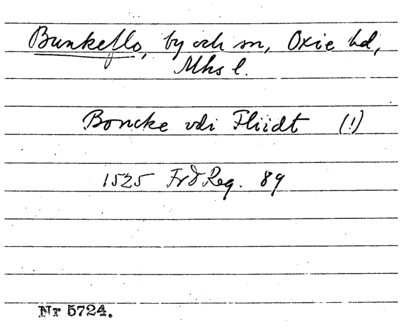 Bunkeflo, by och sn, Oxie hd,
Mhs l.
Boncke vdi Fliidt (!)
1525 FrdReg. 89
Nr 5724.